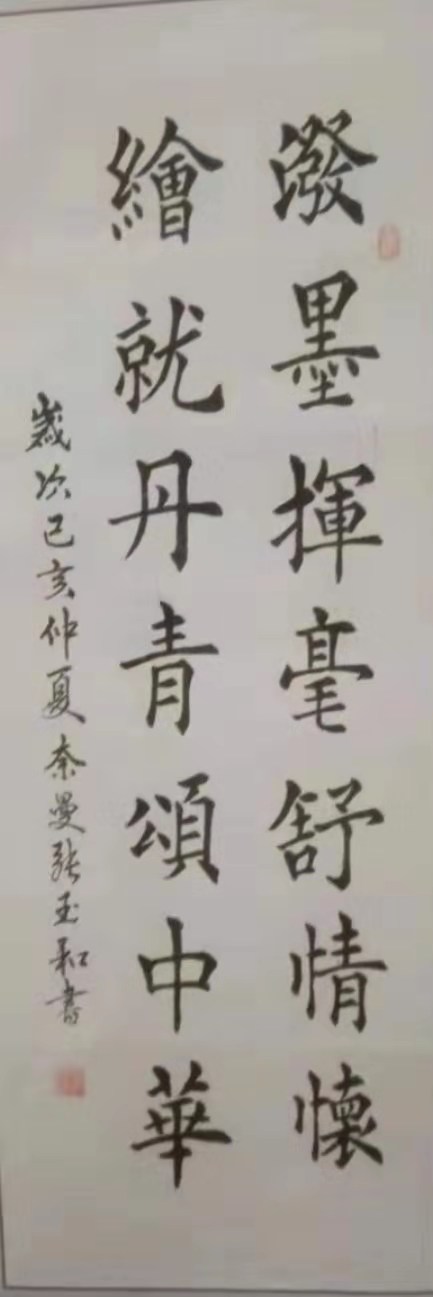 潑墨揮毫舒情懷
繪就丹青頌中華
歲次己亥仲夏奈曼張玉和書